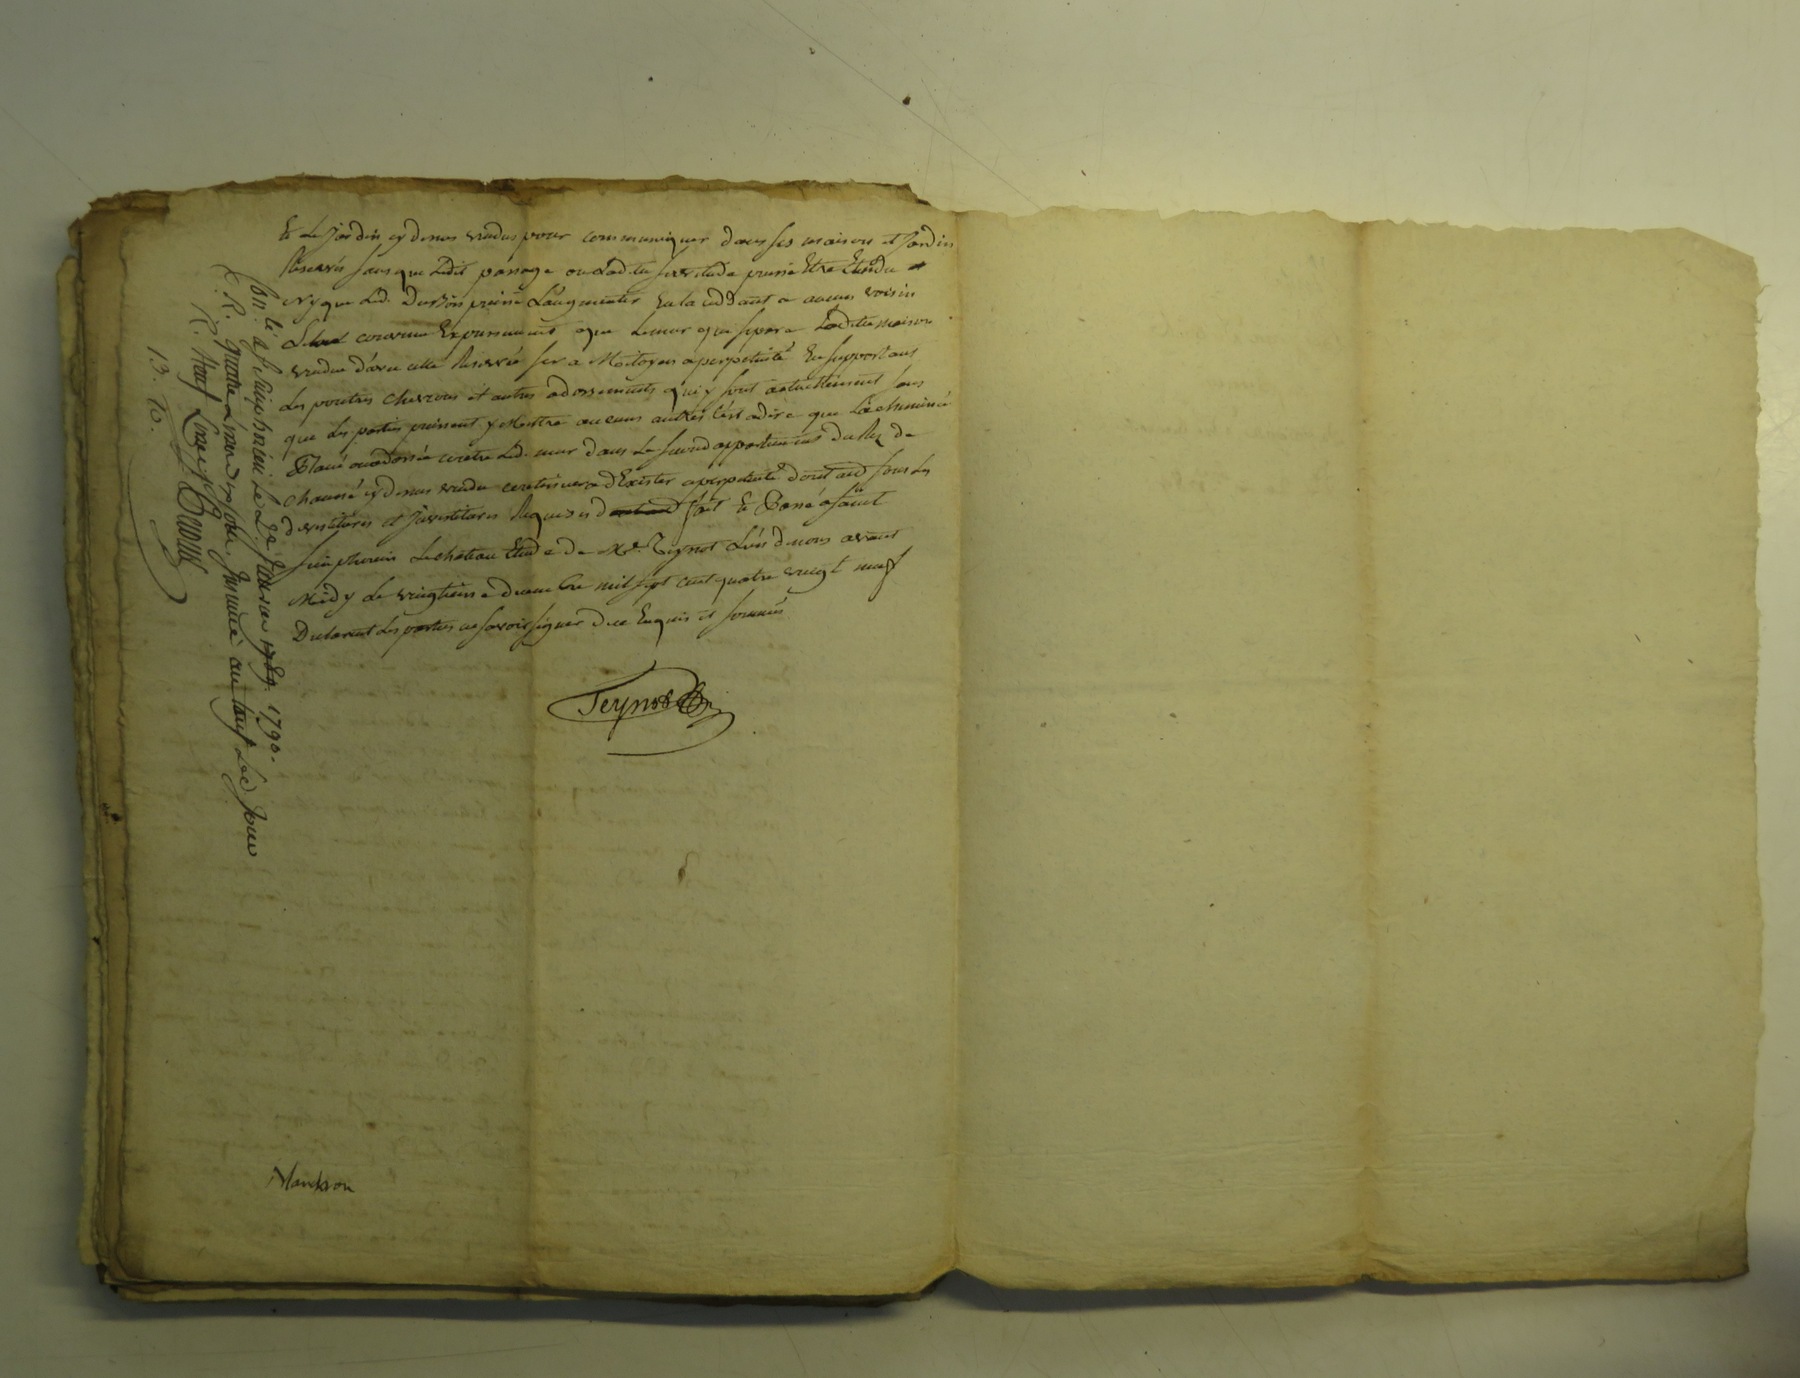 et le Jardin cy dessus vendus pour communiquer dans ses maison et Jardin
Réservés sans que ledit passage ou ladite servitude puisse Etre Etendu
ny que led. puisse L'augmenter En la ceddant a aucun voisin
convenu Expressement que le mur qui separe Ladite maison
vendue d'avec celle Reservée sera Mitoyen a perpetuité En supportant
Les poutres chevrons et autres adossements qui y sont actuellement sans
que les parties puissent y Mettre aucuns autres c'est adire que La cheminée
Placée ou adossée contre Led. mur dans Le second appartement du Rez de
chaussé cy dessus vendu continuera d'Exister a perpetuité dont acte sous les
devestitures et Investitures Requises fait et Passé a Saint
Simphorien Le chateau Etude de Me. Teynot L'un de nous avant
Midy Le vingtieme decembre mil sept cent quatre vingt neuf
Declarant Les parties ne savoir signer de ce Enquis et sommés
Teynot
Con. lé a St Simphorien Le 2 Janvier 1789. 1790.
R. quatre Livres dix sols. Insinué au tarif Led. Jour
R. Neuf Livres
13. 10.